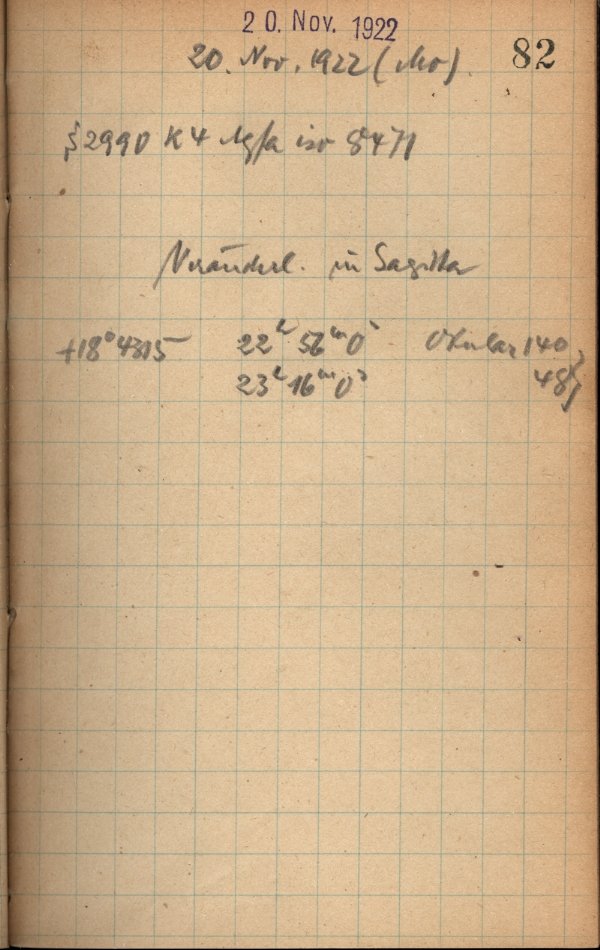 20. Nov. 1922
82
20. Nov. 1922 (Mo).
2990 K4 Agfa iso 8471
Veränderl. in Sagitta
+18° 4315 22h 56m 0s Okular 140
23h 16m 0s 48